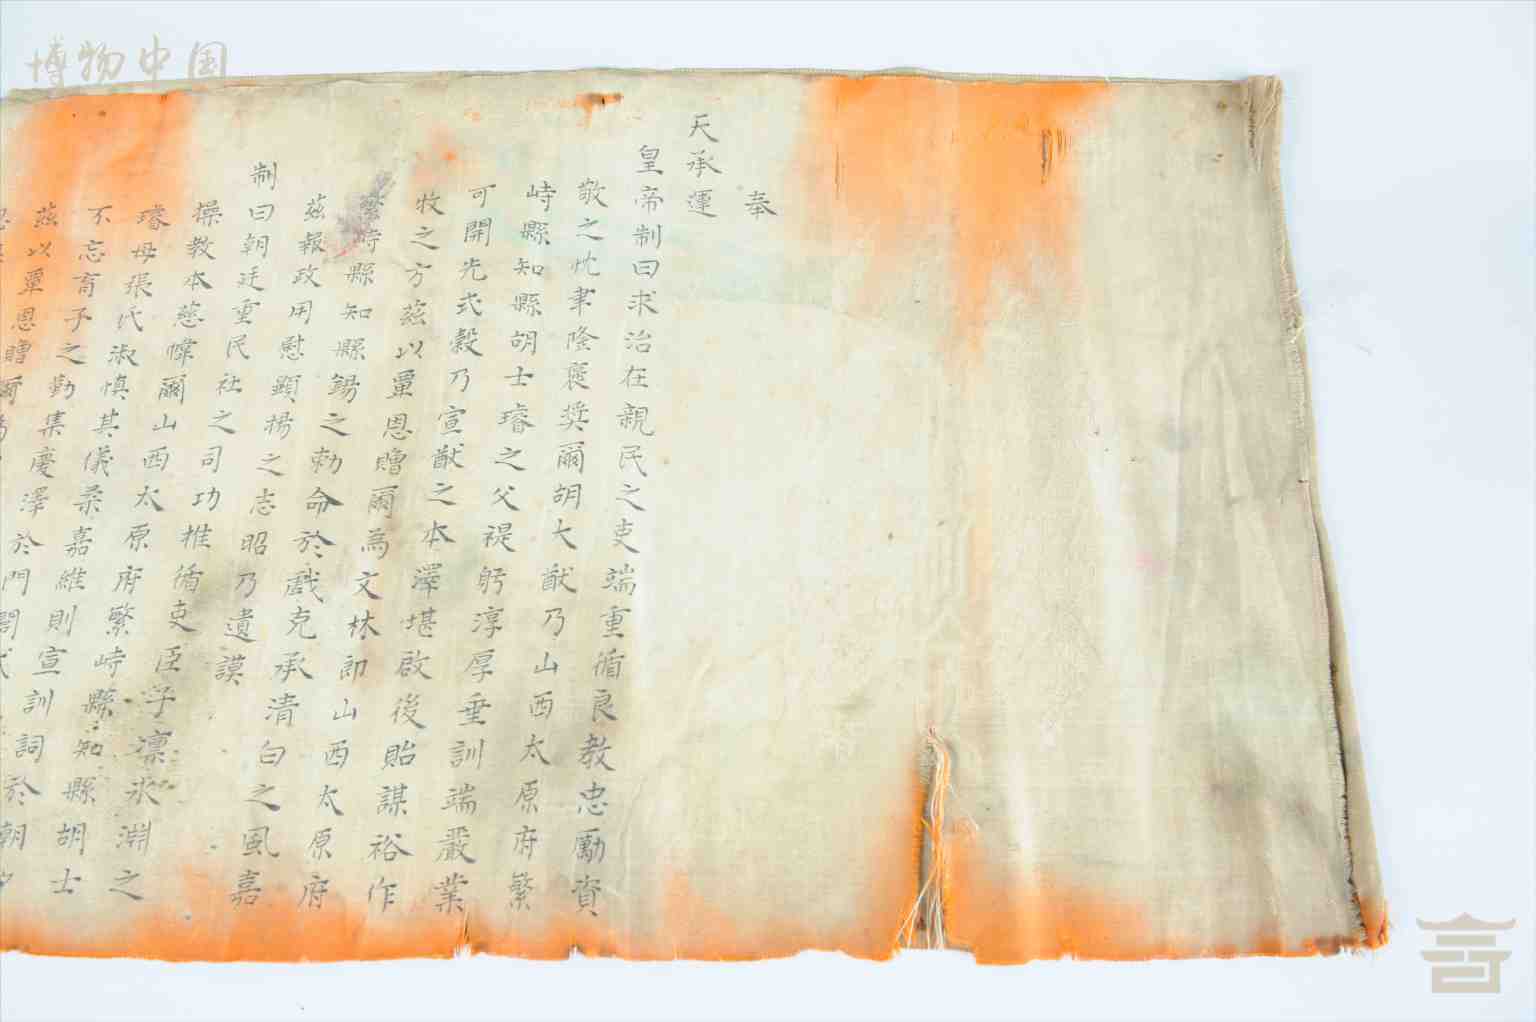 奉
天承運
皇帝制曰求治在親民之吏端重循良教忠勵資
敬之忱聿隆褒奬爾胡大猷乃山西太原府繁
峙縣知縣胡士璿之父禔躬淳厚垂訓端嚴業
可開先式穀乃宣猷之本澤堪啟後貽謀裕作
牧之方茲以覃恩贈爾為文林郎山西太原府
繁峙縣知縣錫之勅命於戲克承清白之風嘉
茲報政用慰顯揚之志昭乃遺謨
制曰朝廷重民社之司功推循吏臣子凜氷淵之
操教本慈幃爾山西太原府繁峙縣知縣胡士
璿母張氏淑慎其儀柔嘉維則宣訓詞於朝夕
不忘育子之勤集慶澤於門閭式
茲以覃恩贈爾為
博物中国